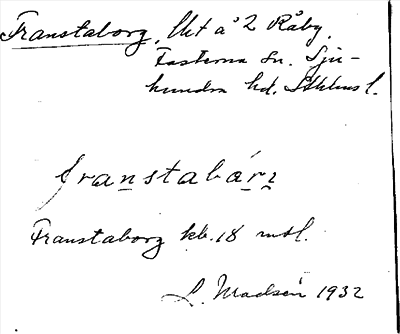 Franstaborg, Ukt å 2 Råby,
Fasterna sn. Sju-
hundra hd. Sthlms l.
franstabárı
Franstaborg kb. 18 mtl.
L. Madsén 1932